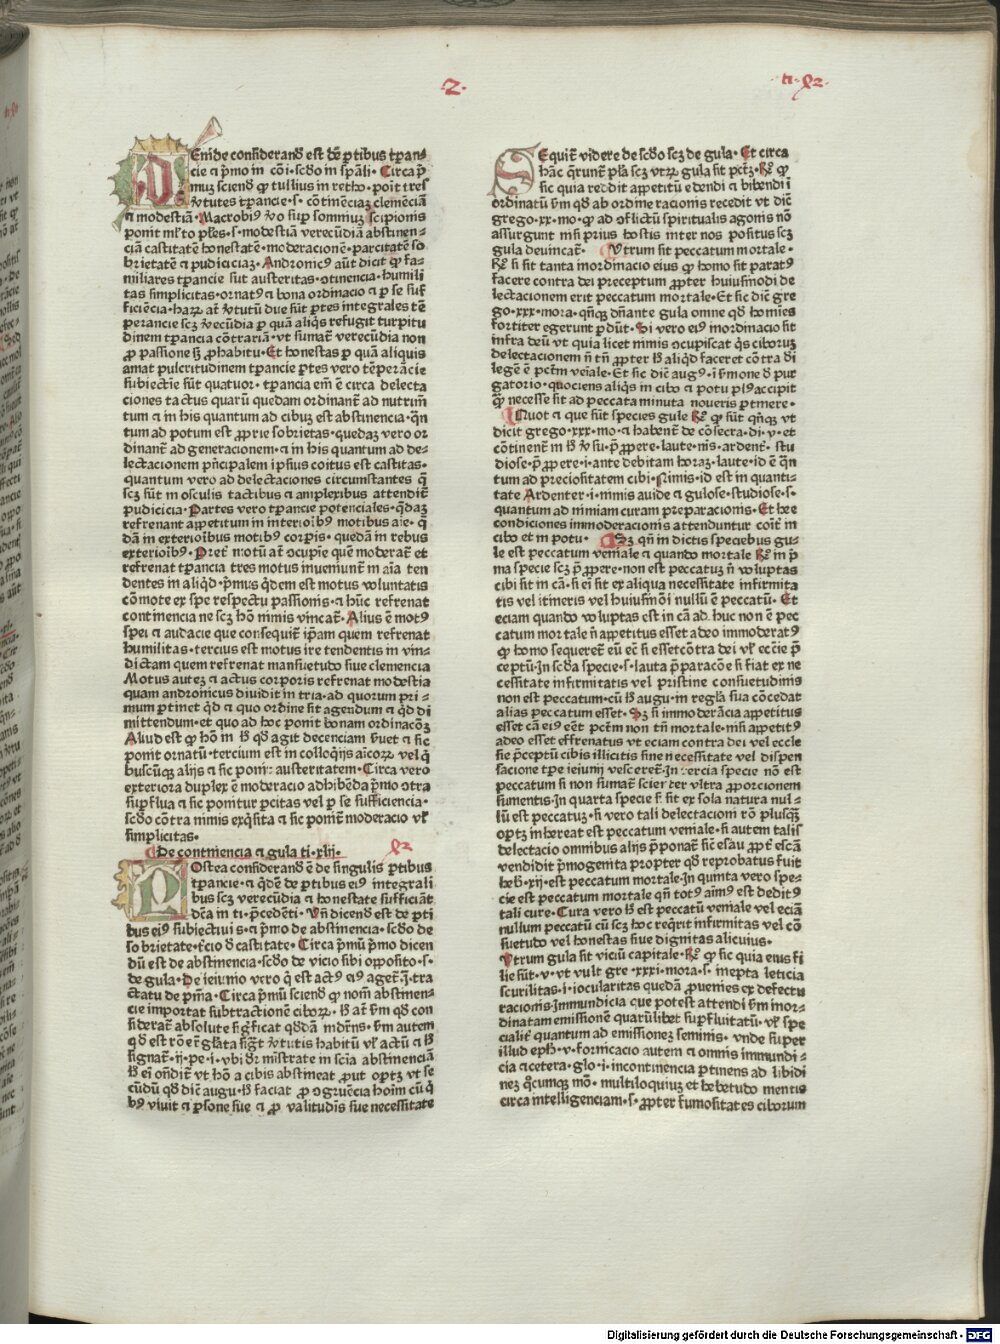 ·2·
DEnide considerand est de ptibus tpan-
cie ⁊ pmo in coi·scdo in spali· Circa p̄
muz sciend ꝙ tullius in retho·poit tres
vtutes tpancie·s·cōtinēciaz clemēciā
⁊ modestiā·Macrobiꝰ vo sup somniuz scipionis
ponit mlto ples·s·modestiā verecūdiā abstinen-
ciā castitatē honestatē·moderacionē·parcitatē so
brietatē ⁊ pudiciciaz·Andronicꝰ aut dicit ꝙ fa-
miliares tpancie sut austeritas·ↄtinencia·humili
tas simplicitas·ornatꝰ ⁊ bona ordinacio ⁊ p se suf
ficiēcia·haꝝ at vtutū due sūt ptes integrales tē
perancie scz vecūdia p quā aliqs refugit turpitu
dinem tpancia cōtrariā·vt sumat verecūdia non
ꝓ passione sꝫ ꝓ habitu·Et honestas p quā aliquis
amat pulcritudinem tpancie ptes vero tēperācie
subiectie sūt quatuor·tpancia em ē circa delecta
ciones tactus quarū quedam ordinant ad nutrim
tum ⁊ in his quantum ad cibuz est abstinencia·qn
tum ad potum est ꝓprie sobrietas·quedaz vero or
dinant ad generacionem·⁊ in his quantum ad de-
lectacionem pncipalem ipsius coitus est castitas·
quantum vero ad delectaciones circumstantes q̄
scz sūt in osculis tactibus ⁊ amplexibus attendit
pudicicia·Partes vero tpancie potenciales·qdaz
refrenant appetitum in interioibꝰ motibus aīe·q̄
dā in exterioibus motibꝰ corpis·quedā in rebus
exterioibꝰ·Pret motū at ↄcupie que moderat et
refrenat tpancia tres motus inueniunt in aīa ten
dentes in aliqd·pmus qdem est motus volūtatis
cōmote ex spe respectu passionis·⁊ hūc refrenat
continencia ne scz hom nimis vincat·Alius ē motꝰ
spei ⁊ audacie que consequit ipam quem refrenat
humilitas·tercius est motus ire tendentis in vin-
dictam quem refrenat mansuetudo siue clemencia
Motus autez ⁊ actus corporis refrenat modestia
quam andronicus diuidit in tria·ad quorum pri-
mum ptinet qd ⁊ quo ordine sit agendum ⁊ qd di
mittendum·et quo ad hoc ponit bonam ordinacōz
Aliud est ꝙ hō in ħ qd agit decenciam suet ⁊ sic
ponit ornatū·tercium est in colloqijs aicoꝝ vel q̄
buscūqꝫ alijs ⁊ sic ponit austeritatem·Circa vero
exteriora duplex ē moderacio adhibēda pmo ↄtra
supflua ⁊ sic ponitur pcitas vel p se sufficiencia·
scdo cōtra nimis exqsita ⁊ sic ponit moderacio vl
simplicitas·
De continencia ⁊ gula ti·xlij·
POstea considerand ē de singulis ptibus
tpancie·⁊ qdē de ptibus eiꝰ integrali
bus scz verecūdia ⁊ honestate sufficiāt
dcā in ti·pcedēti·Vn dicend est de pti
bus eiꝰ subiectuis ⁊ pmo de abstinencia·scdo de
sobrietate·tcio d castitate·Circa pmū pmo dicen
dū est de abstinēcia·scdo de vicio sibi opposito·s·
de gula·De ieiunio vero q est actꝰ eiꝰ aget·j·tra
ctatu de pnia·Circa pmū sciend ꝙ nom abstinen-
cie importat subtractionē ciboꝝ·ħ at bm qd con
siderat absolute significat qddā mdrns·bm autem
qd est rōe rglata signt vtutis habitū vl actū ⁊ ħ
signat·ij·pe·i·vbi dr mistrate in scia abstinenciā
ħ ei ondit vt hō a cibis abstineat ꝓut optz vt se
cūdū qd dic augu·ħ faciat ꝓ ↄgruēcia hoim cū q
bꝰ viuit ⁊ psone sue ⁊ ꝓ valitudīs sue necessitate
SEquit videre de scdo scz de gula·Et circa
hāc qrunt pla scz vtꝝ gula sit pctz·℟ ꝙ
sic quia reddit appetitū edendi ⁊ bibendi i
ordinatū bm qd ab ordine racionis recedit vt dic
grego·xx·mo·ꝙ ad ↄflictū spiritualis agonis nō
assurgunt nisi prius hostis inter nos positus scz
gula deuincat· Vtrum sit peccatum mortale·
℟ si sit tanta inordinacio eius ꝙ homo sit paratꝰ
facere contra dei preceptum ꝓpter huiusmodi de
lectacionem erit peccatum mortale·Et sic dic gre
go·xxx·mora·qnqꝫ dnante gula omne qd homies
fortiter egerunt pdūt·Si vero eiꝰ inordinacio sit
infra deū vt quia licet nimis ↄcupiscat qs ciborum
delectacionem n tn ꝓpter ħ aliqd faceret cōtra di
legē ē pctm veiale·Et sic dic augꝰ·i smone d pur
gatorio·quociens aliqs in cibo ⁊ potu plꝰ accipit
ꝙ necesse sit ad peccata minuta noueris ptinere·
Quot ⁊ que sūt species gule ℟ ꝙ sūt qnqꝫ vt
dicit grego·xxx·mo·⁊ habent de cōsecra·di·v·et
cōtinent in ħ vsu·pppere·laute·nis·ardent·stu
diose·pppere·i·ante debitam horaz·laute·id ē qn
tum ad preciositatem cibi·Nimis·id est in quanti-
tate Ardenter·i·nimis auide ⁊ gulose·studiose·s·
quantum ad nimiam curam preparacionis·Et hee
condiciones immoderacionis attenduntur cont in
cibo et in potu· Sz qn in dictis speciebus gu-
le est peccatum veniale ⁊ quando mortale ℟ in p
ma specie scz pppere·non est peccatuz n voluptas
cibi sit in cā·si ei sit ex aliqua necessitate infirmita
tis vel itineris vel huiusmoi nullū ē peccatū·Et
eciam quando voluptas est in cā ad huc non ē pec
catum mortale n appetitus esset adeo immoderatꝰ
ꝙ homo sequeret eū ec si esset cōtra dei vl eccie p
ceptū·In scda specie·s·lauta pparacōe si fiat ex ne
cessitate infirmitatis vel pristine consuetudinis
non est peccatum·cū ħ augu·in regla sua cōcedat
alias peccatum esset·Sz si immoderācia appetitus
esset cā eiꝰ eēt pctm non tn mortale·nisi appetitꝰ
adeo esset effrenatus vt eciam contra dei vel eccle
sie pceptū cibis illicitis sine necessitate vel dispen
sacione tpe ieiunij vesceret·In tercia specie nō est
peccatum si non sumat scienter vltra ꝓporcionem
sumentis·In quarta specie si sit ex sola natura nul-
lū est peccatuz·si vero tali delectacioni rō plusqꝫ
optz inhereat est peccatum veniale·si autem talis
delectacio omnibus alijs pponat sic esau ꝓpt escā
vendidit pmogenita propter qd reprobatus fuit
heb·xij·est peccatum mortale·In quinta vero spe-
cie est peccatum mortale qn totꝰ aimꝰ est deditꝰ
tali cure·Cura vero ħ est peccatū veniale vel eciā
nullum peccatū cū scz hoc reqrit infirmitas vel cō
suetudo vel honestas siue dignitas alicuius·
Vtrum gula sit viciū capitale·℟ ꝙ sic quia eius fi
lie sūt·v·vt vult gre·xxxi·mora·s·inepta leticia
scurilitas·i·iocularitas quedā ꝓueniēs ex defectu
racionis·Immundicia que potest attendi bm inor-
dinatam emissionē quarūlibet supfluitatū·vl spe
cialit quantum ad emissionez seminis·vnde super
illud eph·v·fornicacio autem ⁊ omnis immundi-
cia ⁊ cetera·glo·i·incontinencia ptinens ad libidi
nez qcumqꝫ mō·multiloquiuz et hebetudo mentis
circa intelligenciam·s·ꝓpter fumositates ciborum
Digitalisierung gefördert durch die Deutsche Forschungsgemeinschaft - DFG